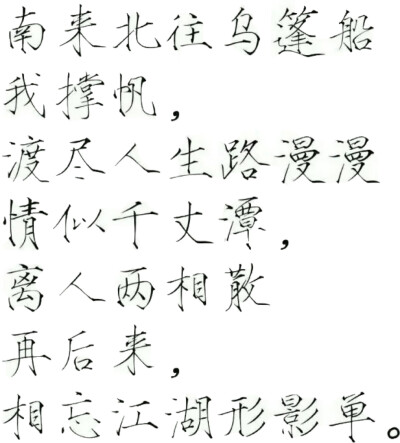 南来北往乌篷船
我撑帆，
渡尽人生路漫漫
情似千丈潭，
离人两相散
再后来，
相忘江湖形影单。